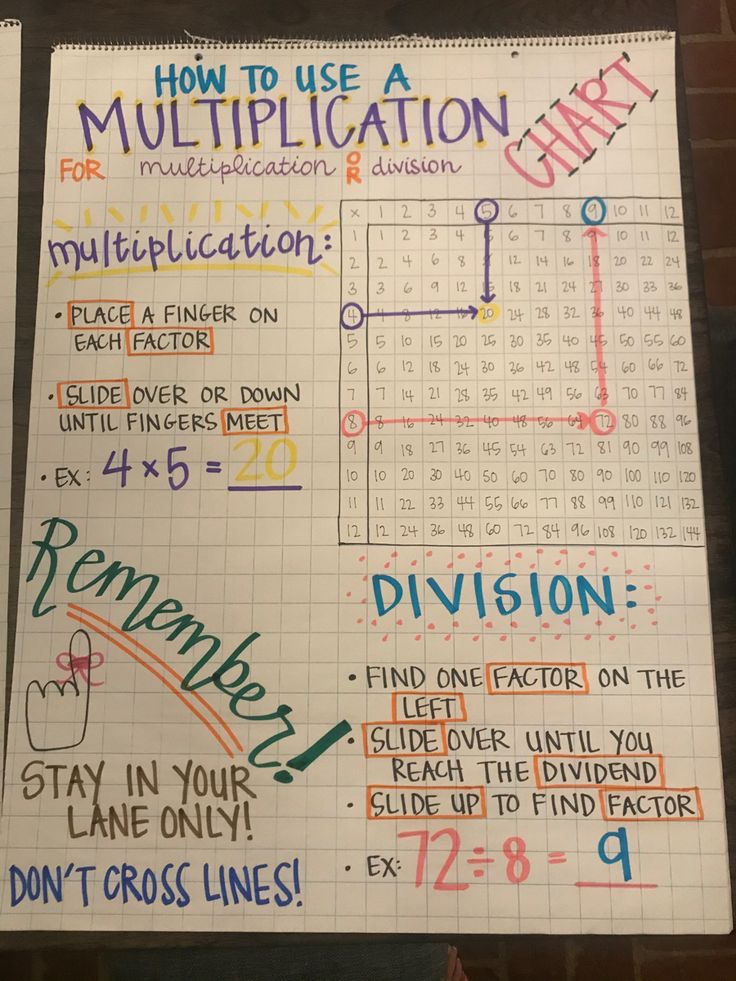 HOW TO USE A
MULTIPLICATION CHART
FOR multiplication OR division
multiplication:
• PLACE A FINGER ON
EACH FACTOR
• SLIDE OVER OR DOWN
UNTIL FINGERS MEET
• EX: 4 × 5 = 20
x 1 2 3 4 5 6 7 8 9 10 11 12
1 1 2 3 4 5 6 7 8 9 10 11 12
2 2 4 6 8 12 14 16 18 20 22 24
3 3 6 9 12 15 18 21 24 27 30 33 36
4 4 8 12 16 20 24 28 32 36 40 44 48
5 5 10 15 20 25 30 35 40 45 50 55 60
6 6 12 18 24 30 36 42 48 54 60 66 72
7 7 14 21 28 35 42 49 56 63 70 77 84
8 8 16 24 32 40 48 56 64 72 80 88 96
9 9 18 27 36 45 54 63 72 81 90 99 108
10 10 20 30 40 50 60 70 80 90 100 110 120
11 11 22 33 44 55 66 77 88 99 110 121 132
12 12 24 36 48 60 72 84 96 108 120 132 144
Remember!
STAY IN YOUR
LANE ONLY!
DON'T CROSS LINES!
DIVISION:
• FIND ONE FACTOR ON THE
LEFT
• SLIDE OVER UNTIL YOU
REACH THE DIVIDEND
• SLIDE UP TO FIND FACTOR
• EX: 72 ÷ 8 = 9